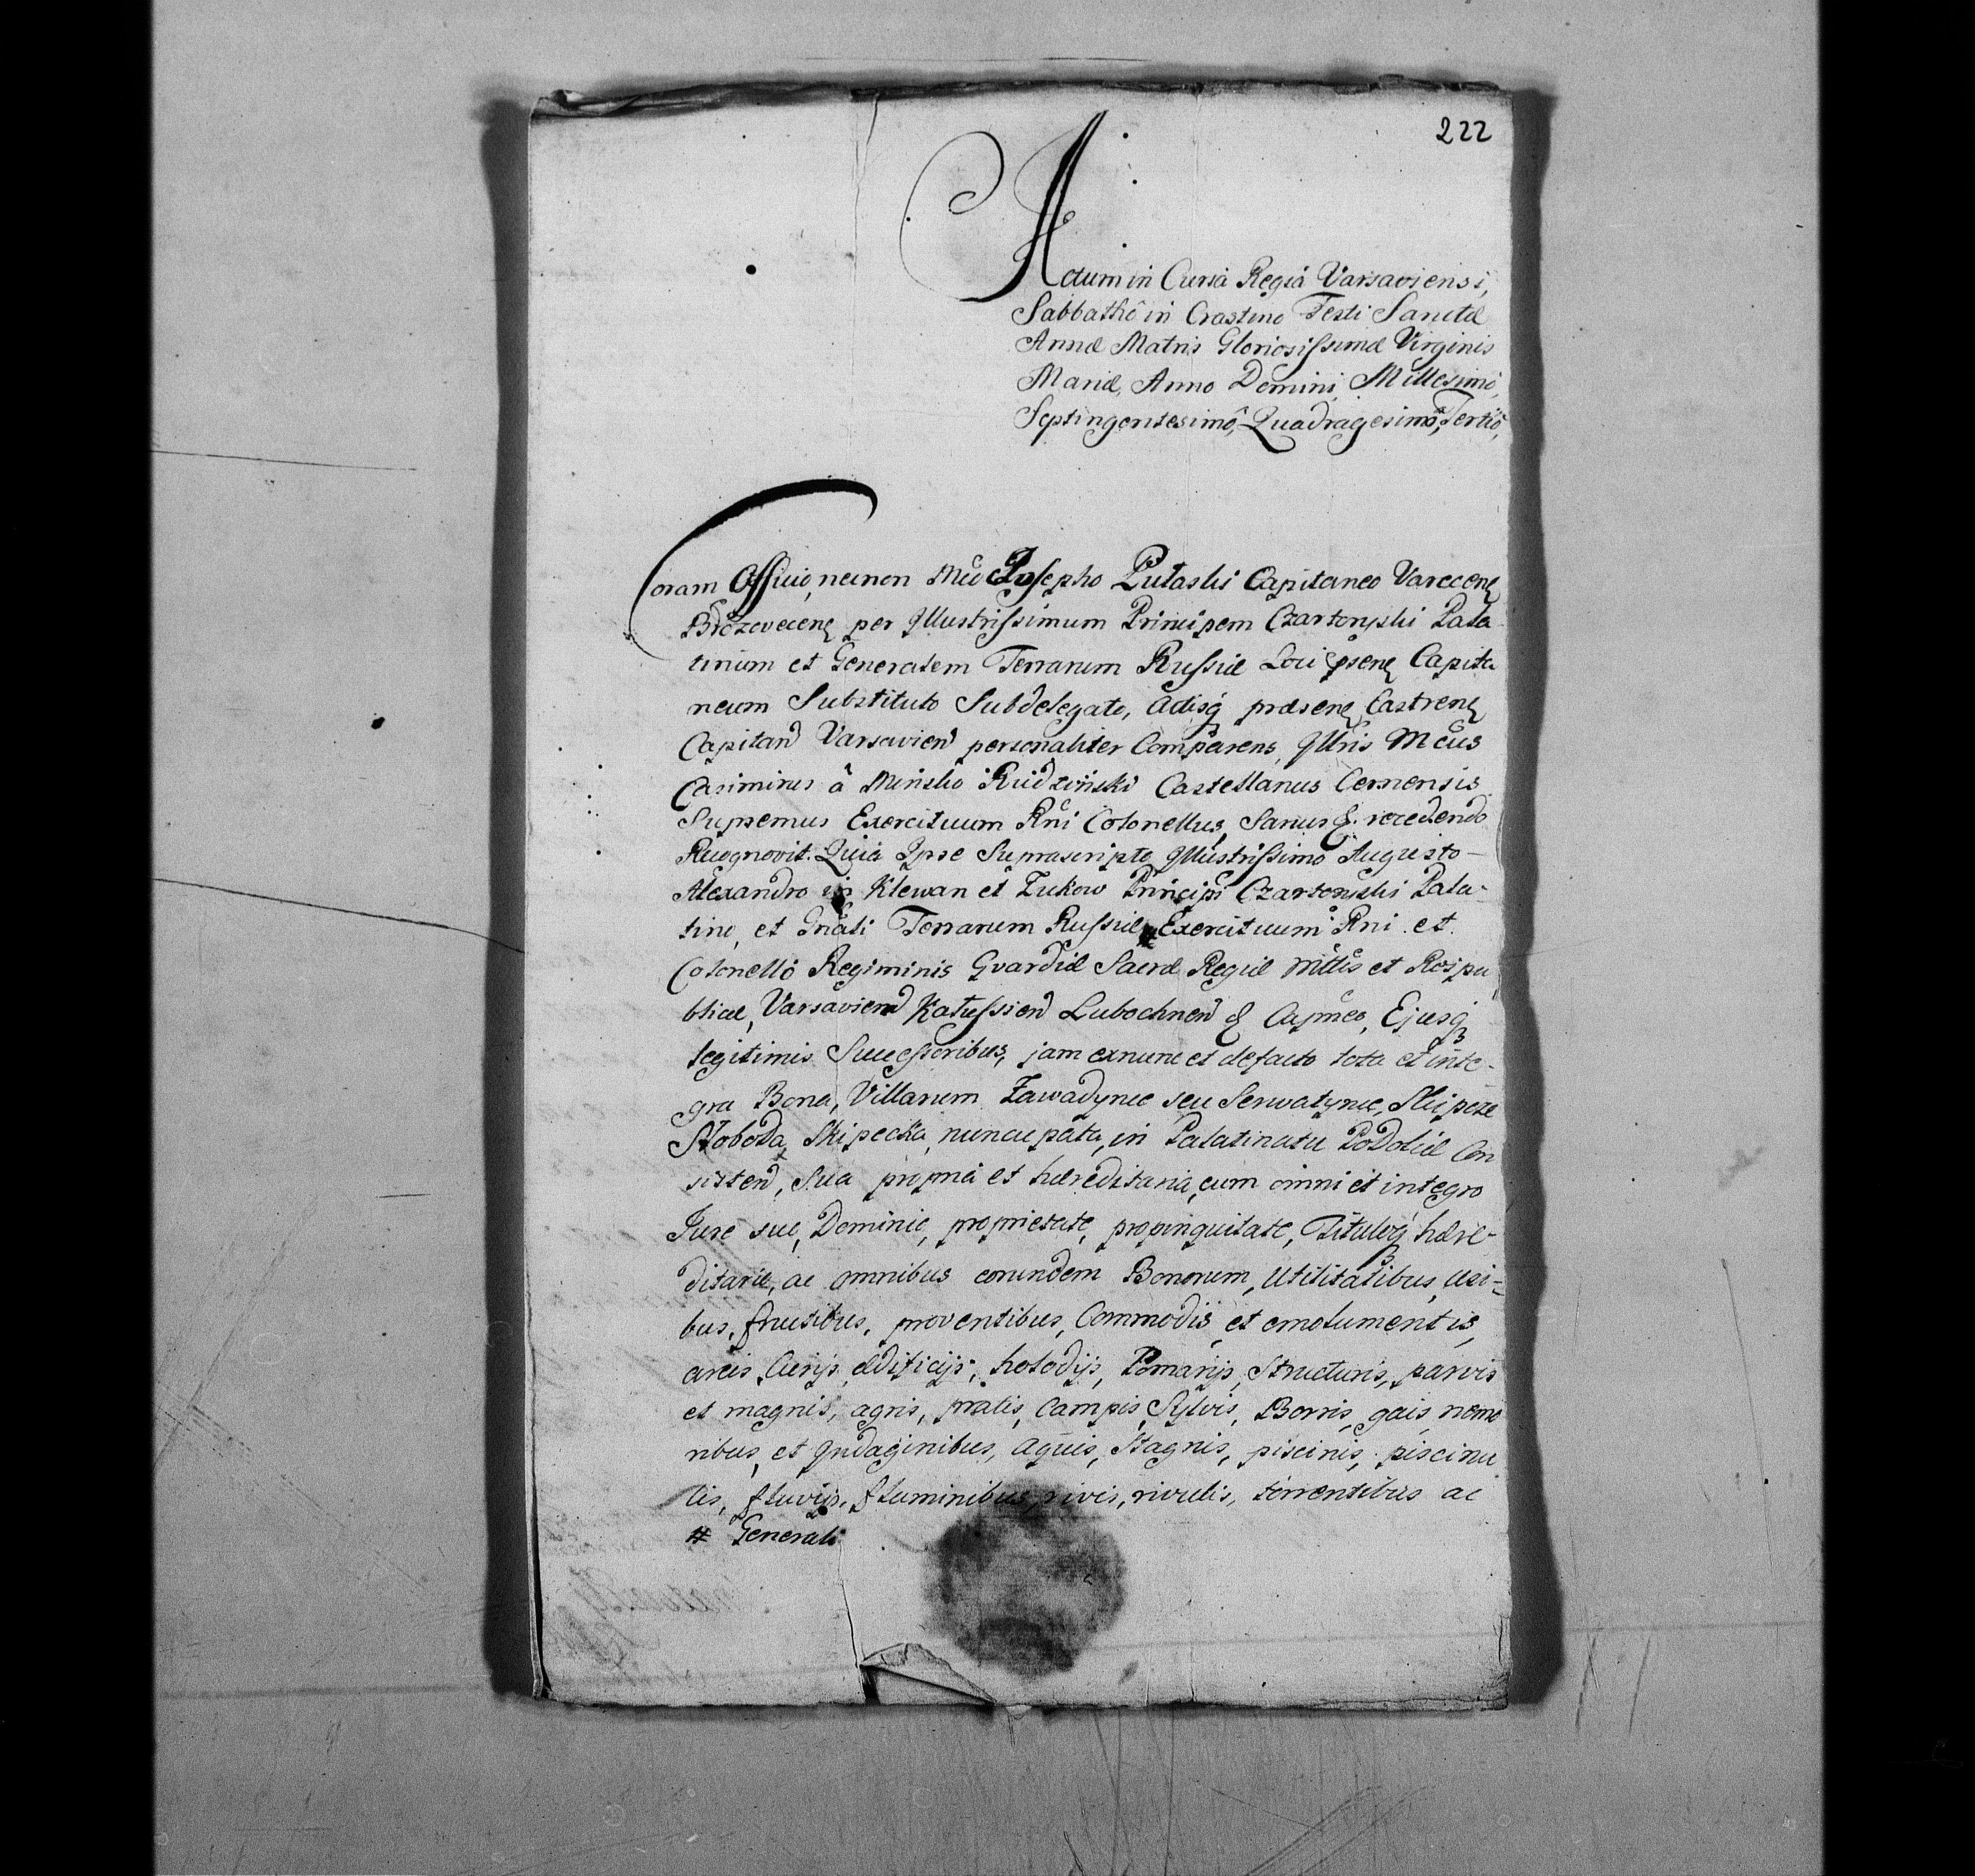 222
Actum in Curia Regia Varsaviensi,
Sabbathô in Crastino Festi Sanctæ
Annæ Matris Gloriosissimæ Virginis
Mariæ, Anno Domini Millesimô,
Septingentesimô, Quadragesimô, Tertiô,
Coram Officio, necnon Mco Josepho Pułaski Capitaneo Varecen
per Illustrissimum Principem Czartoryski Pala
tinum et Generalem Terrarum Russiæ Loci Capita
neum Substituto Subdelegato, Actisq præsen Castren
Capitan Varsavien personaliter Comparens, Illris Mcus
Casimirus â Minsko Rudzinski Castellanus Cernensis
Supremus Exercituum Rni Colonellus, Sanus &. recedendo
Recognovit. Quia Ipse Suprascripto Illustrissimo Augusto
Alexandro in Klewan et Zukow Principi Czartoryski Pala-
tino, et Gnali Terrarum Russiæ, # Exercituum Rni et
Colonello Regiminis Gvardiæ Sacræ Regiæ Mttis et Reipu
blicæ, Varsavien Kałussien Lubochnen & Capneo, Ejusq
legitimis Successoribus, jam exnunc et defacto tota et inte-
gra Bona, Villarum Zawadynce seu Serwatynce, Skipcze
Słoboda Skipecka, nuncupata, in Palatinatu Podoliæ Con
sisten, Sua propria et hæreditaria, cum omni et integro
Jure suo, Dominio, proprietate, propinquitate, Tituloq hære-
ditario, ac omnibus eorundem Bonorum, Utilitatibus, Usi-
bus, fructibus, proventibus, Commodis, et emolumentis,
areis, Curijs, ædificijs, Pomarijs, Structuris, parvis
et magnis, agris, pratis, Campis, Sylvis, Borris, gais, nemo
ribus, et Indaginibus, aquis, Stagnis, piscinis, piscinu
lis, fluvijs, fluminibus, rivis, rivulis, torrentibus ac
# Generali